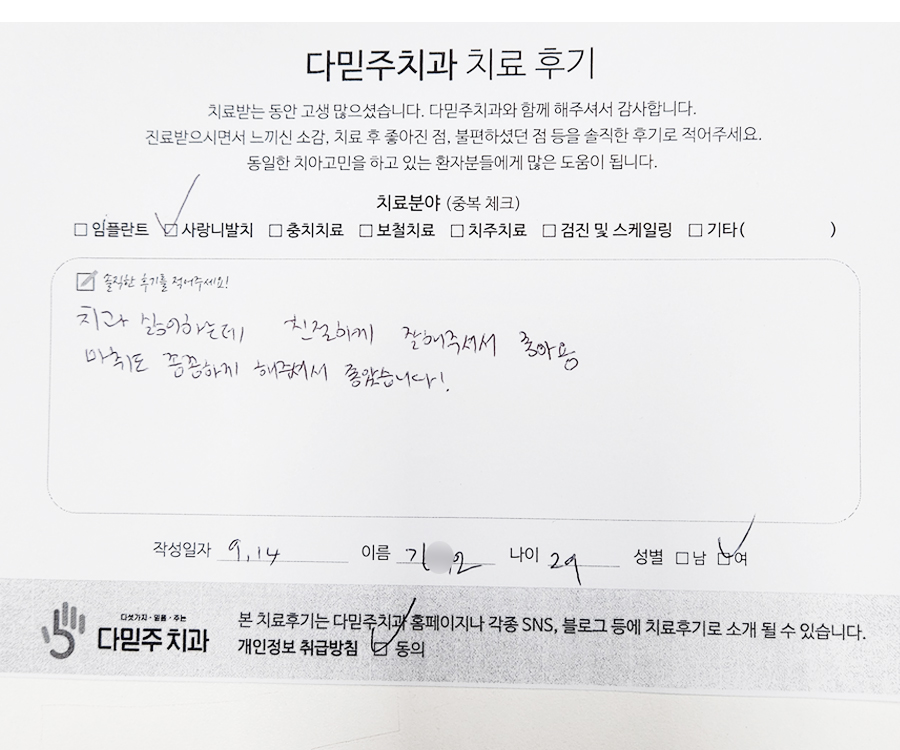 다믿주치과 치료 후기
치료받는 동안 고생 많으셨습니다. 다믿주치과와 함께 해주셔서 감사합니다.
진료받으시면서 느끼신 소감, 치료 후 좋아진 점, 불편하셨던 점 등을 솔직한 후기로 적어주세요.
동일한 치아고민을 하고 있는 환자분들에게 많은 도움이 됩니다.
치료분야 (중복 체크)
□ 임플란트 □ 사랑니발치 □ 충치치료 □ 보철치료 □ 치주치료 □ 검진 및 스케일링 □ 기타( )
솔직한 후기를 적어주세요!
치과 싫어하는데 친절하게 잘해주셔서 좋아용
마취도 꼼꼼하게 해주셔서 좋았습니다!
작성일자 9.14 이름 나이 29 성별 □ 남 □ 여
다섯가지·믿음·주는
다믿주치과
본 치료후기는 다믿주치과 홈페이지나 각종 SNS, 블로그 등에 치료후기로 소개 될 수 있습니다.
개인정보 취급방침 □ 동의